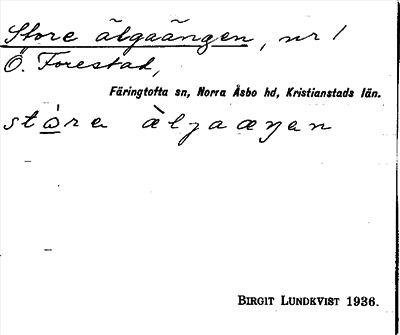 Store älgaängen, nr 1
Ö. Forestad,
Färingtofta sn, Norra Åsbo hd, Kristianstads län.
stòra æ̀lgaæŋen
BIRGIT LUNDKVIST 1936.